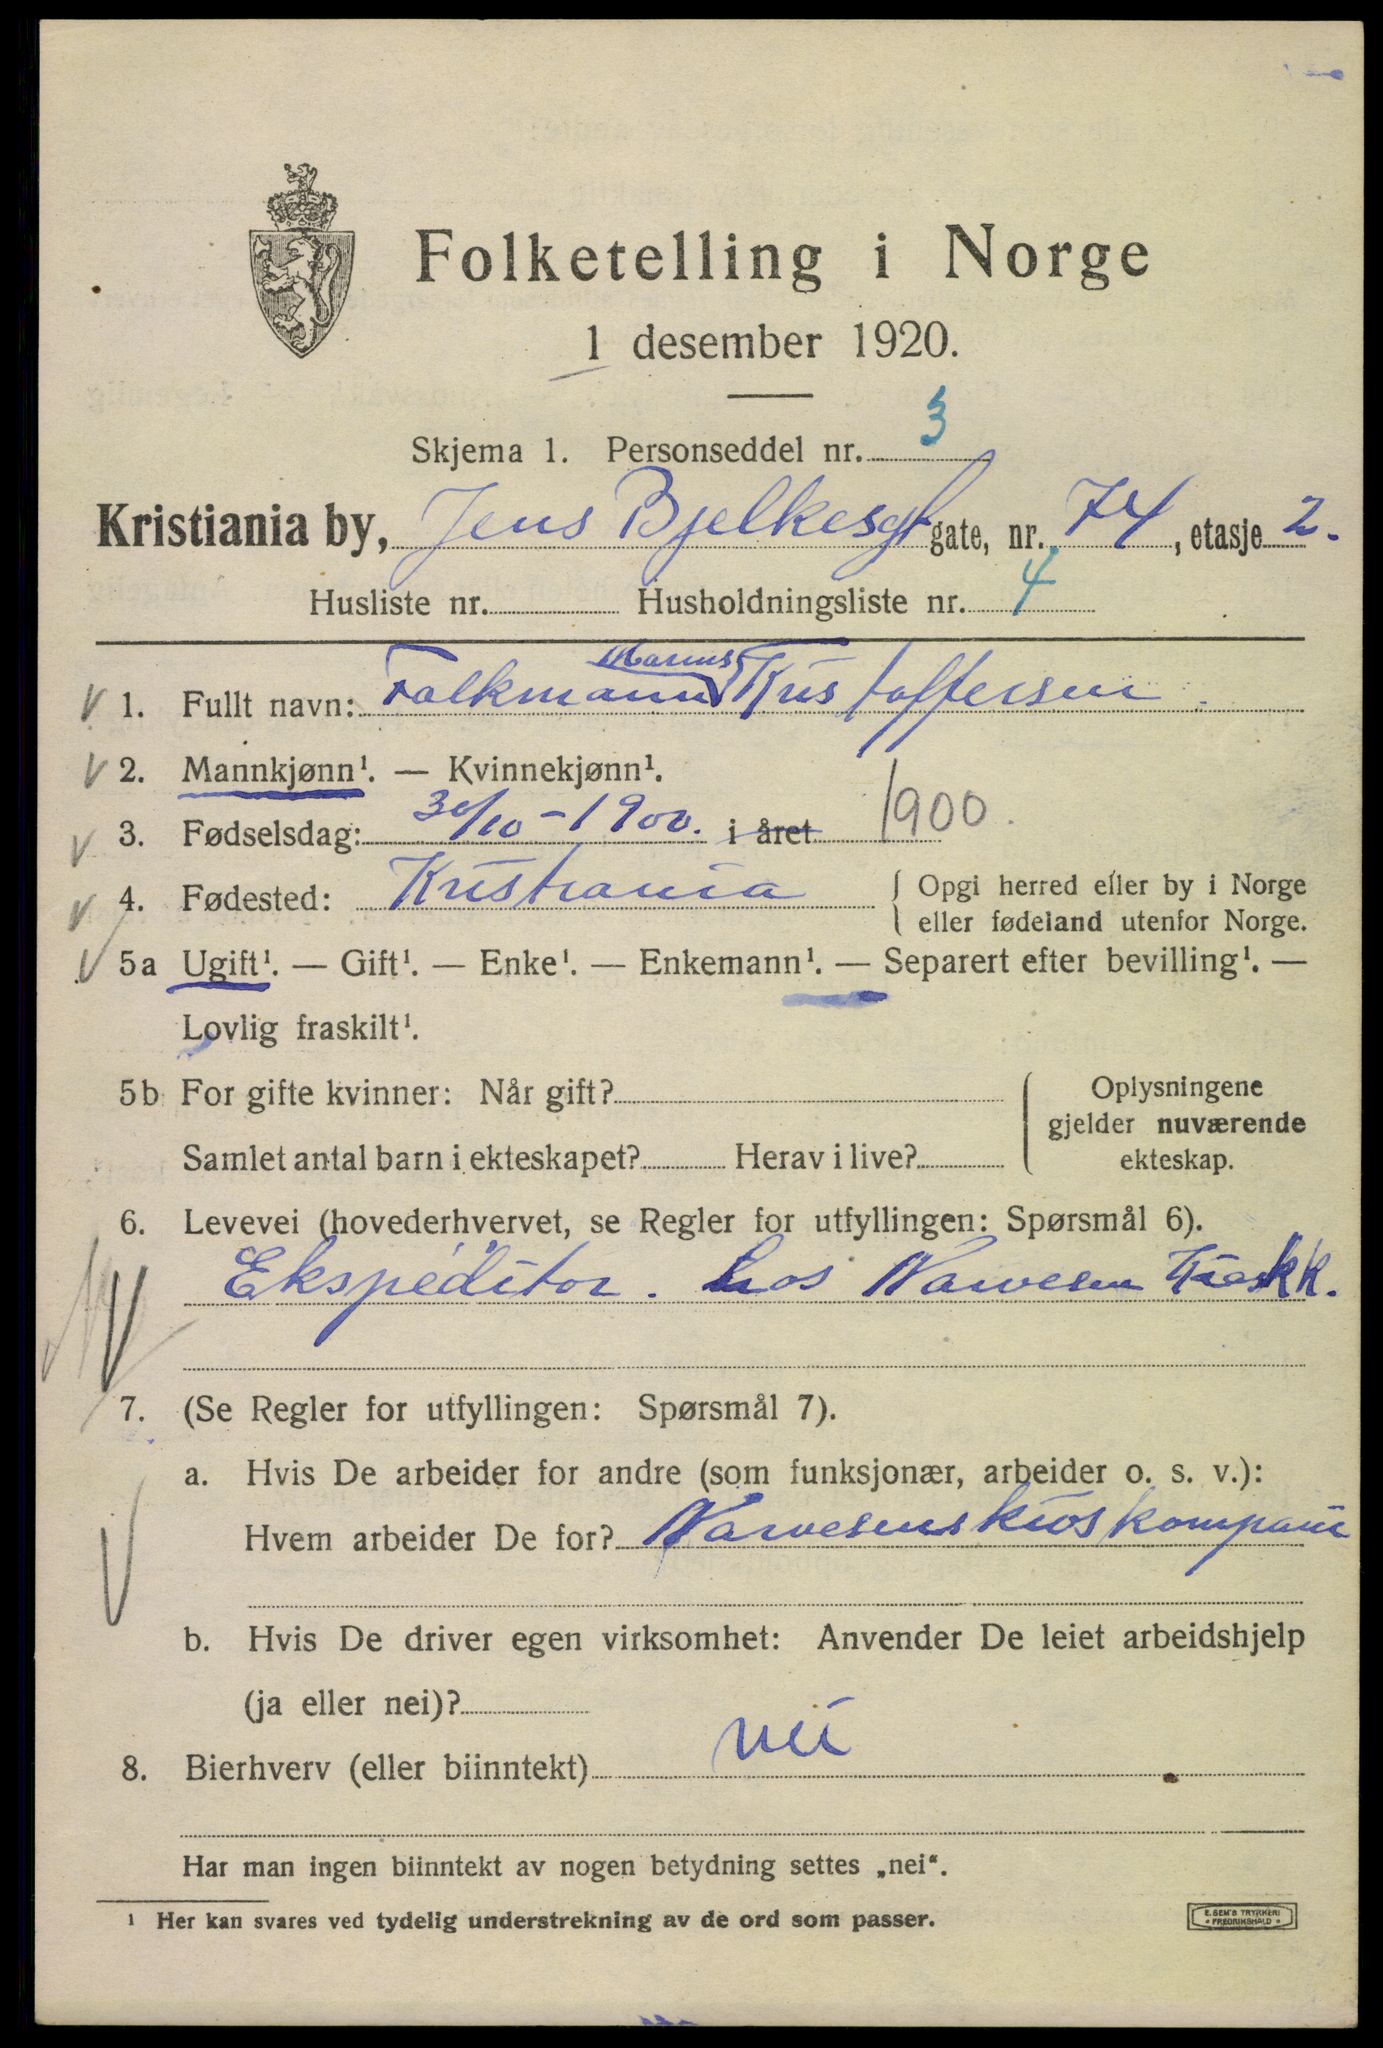 Folketelling i Norge
1 desember 1920.
Skjema 1. Personseddel nr. 3
Kristiania by, Jens Bjelkesgt gate, nr. 74, etasje 2.
Husliste nr. Husholdningsliste nr. 4
Marius
1. Fullt navn: Falkmann Kristoffersen.
2. Mannkjønn¹. — Kvinnekjønn¹.
3. Fødselsdag: 30/10 - 1900. i året 1900.
4. Fødested: Kristiania { Opgi herred eller by i Norge
eller fødeland utenfor Norge.
5a Ugift¹. — Gift¹. — Enke¹. — Enkemann¹. — Separert efter bevilling¹. —
Lovlig fraskilt¹.
5b For gifte kvinner: Når gift?
Samlet antal barn i ekteskapet? Herav i live?
Oplysningene
gjelder nuværende
ekteskap.
6. Levevei (hovederhvervet, se Regler for utfyllingen: Spørsmål 6).
Ekspeditor. hos Narvesen Kiosk K.
7. (Se Regler for utfyllingen: Spørsmål 7).
a. Hvis De arbeider for andre (som funksjonær, arbeider o. s. v.):
Hvem arbeider De for? Narvesens kioskkompani
b. Hvis De driver egen virksomhet: Anvender De leiet arbeidshjelp
(ja eller nei)?
8. Bierhverv (eller biinntekt) nei
Har man ingen biinntekt av nogen betydning settes „nei“.
¹ Her kan svares ved tydelig understrekning av de ord som passer.
E. SEM'S TRYKKERI
• FREDRIKSHALD •